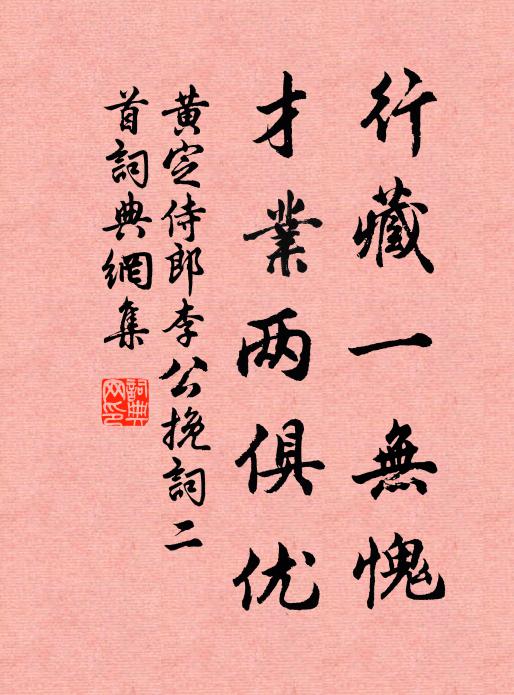 行藏一無愧
才業两俱优
黄定侍郎李公挽詞二
首詞典網集
詞典
网印